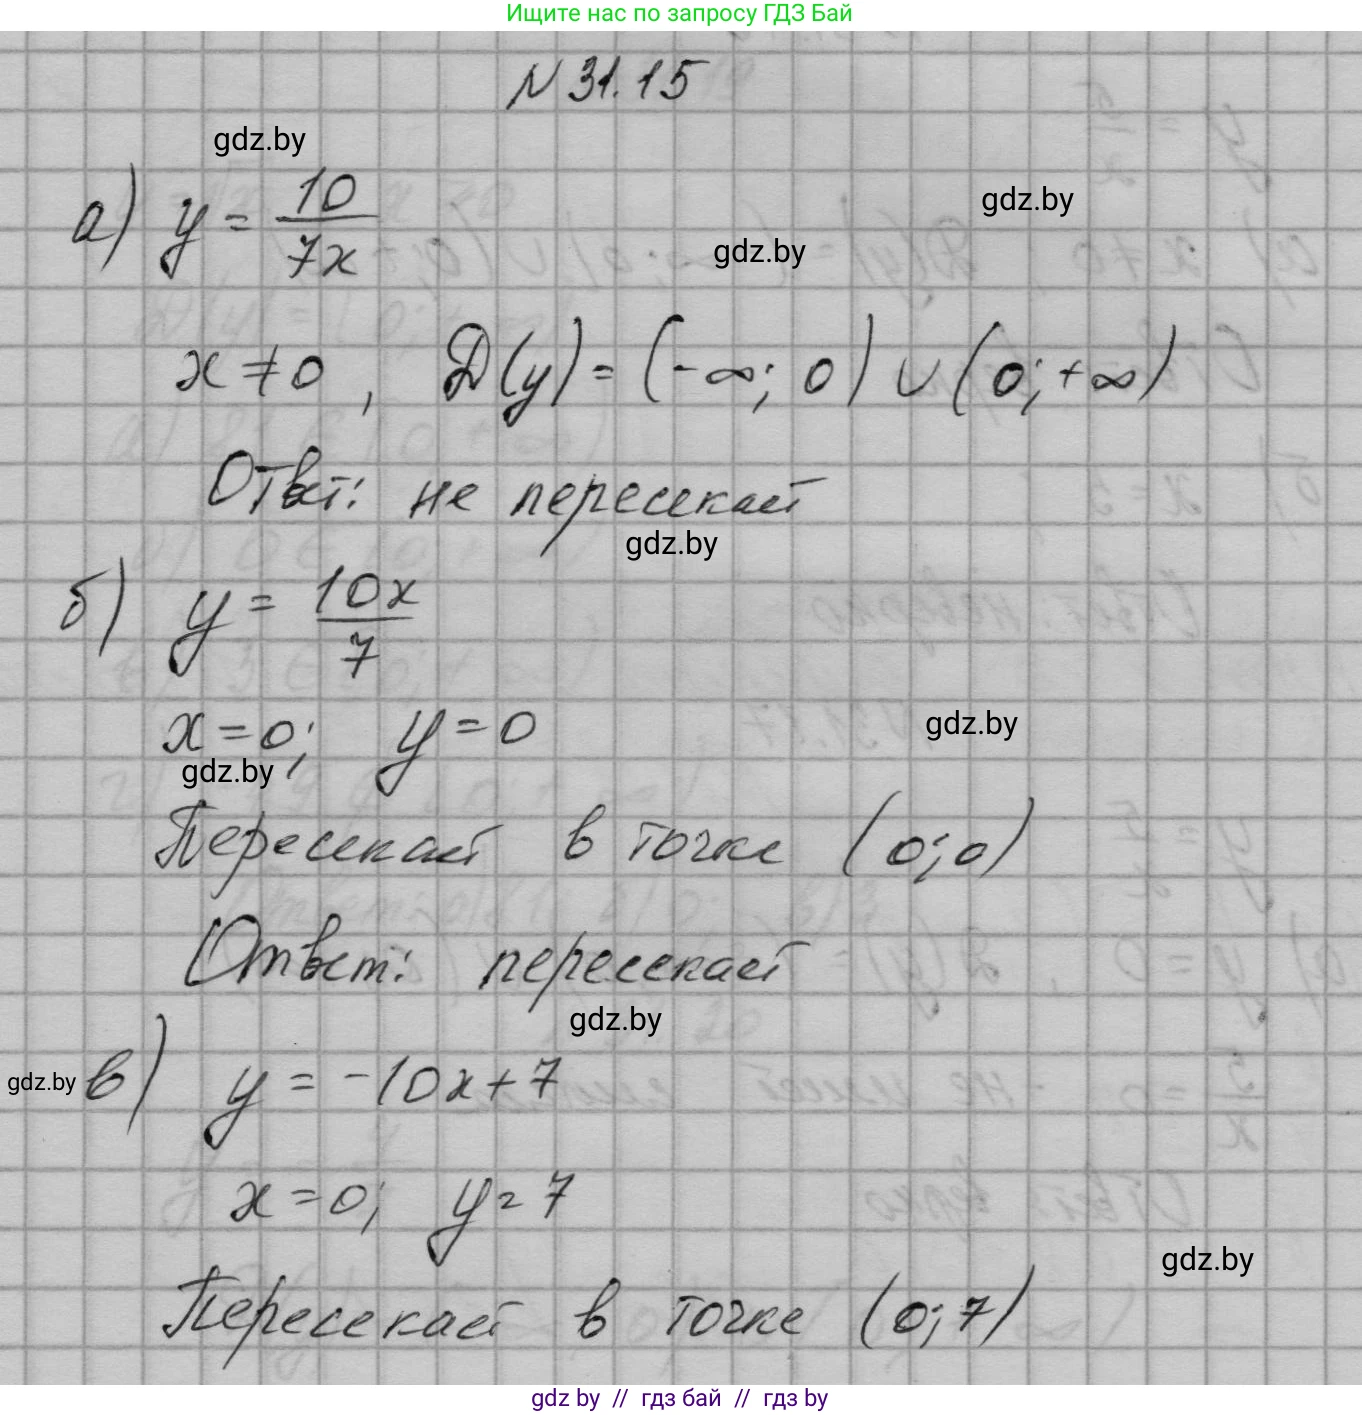 Ищите нас по запросу ГДЗ Бай
N 31.15
gdz.by
а) y = 10/7x
gdz.by
gdz.by
x ≠ 0, D(y) = (-∞; 0) ∪ (0; +∞)
Ответ: не пересекает
gdz.by
б) y = 10x/7
x = 0; y = 0
gdz.by
gdz.by
Пересекает в точке (0; 0)
Ответ: пересекает
gdz.by
gdz.by
в) y = -10x + 7
x = 0; y = 7
gdz.by
Пересекает в точке (0; 7)
gdz by // гдз бай // гдз by